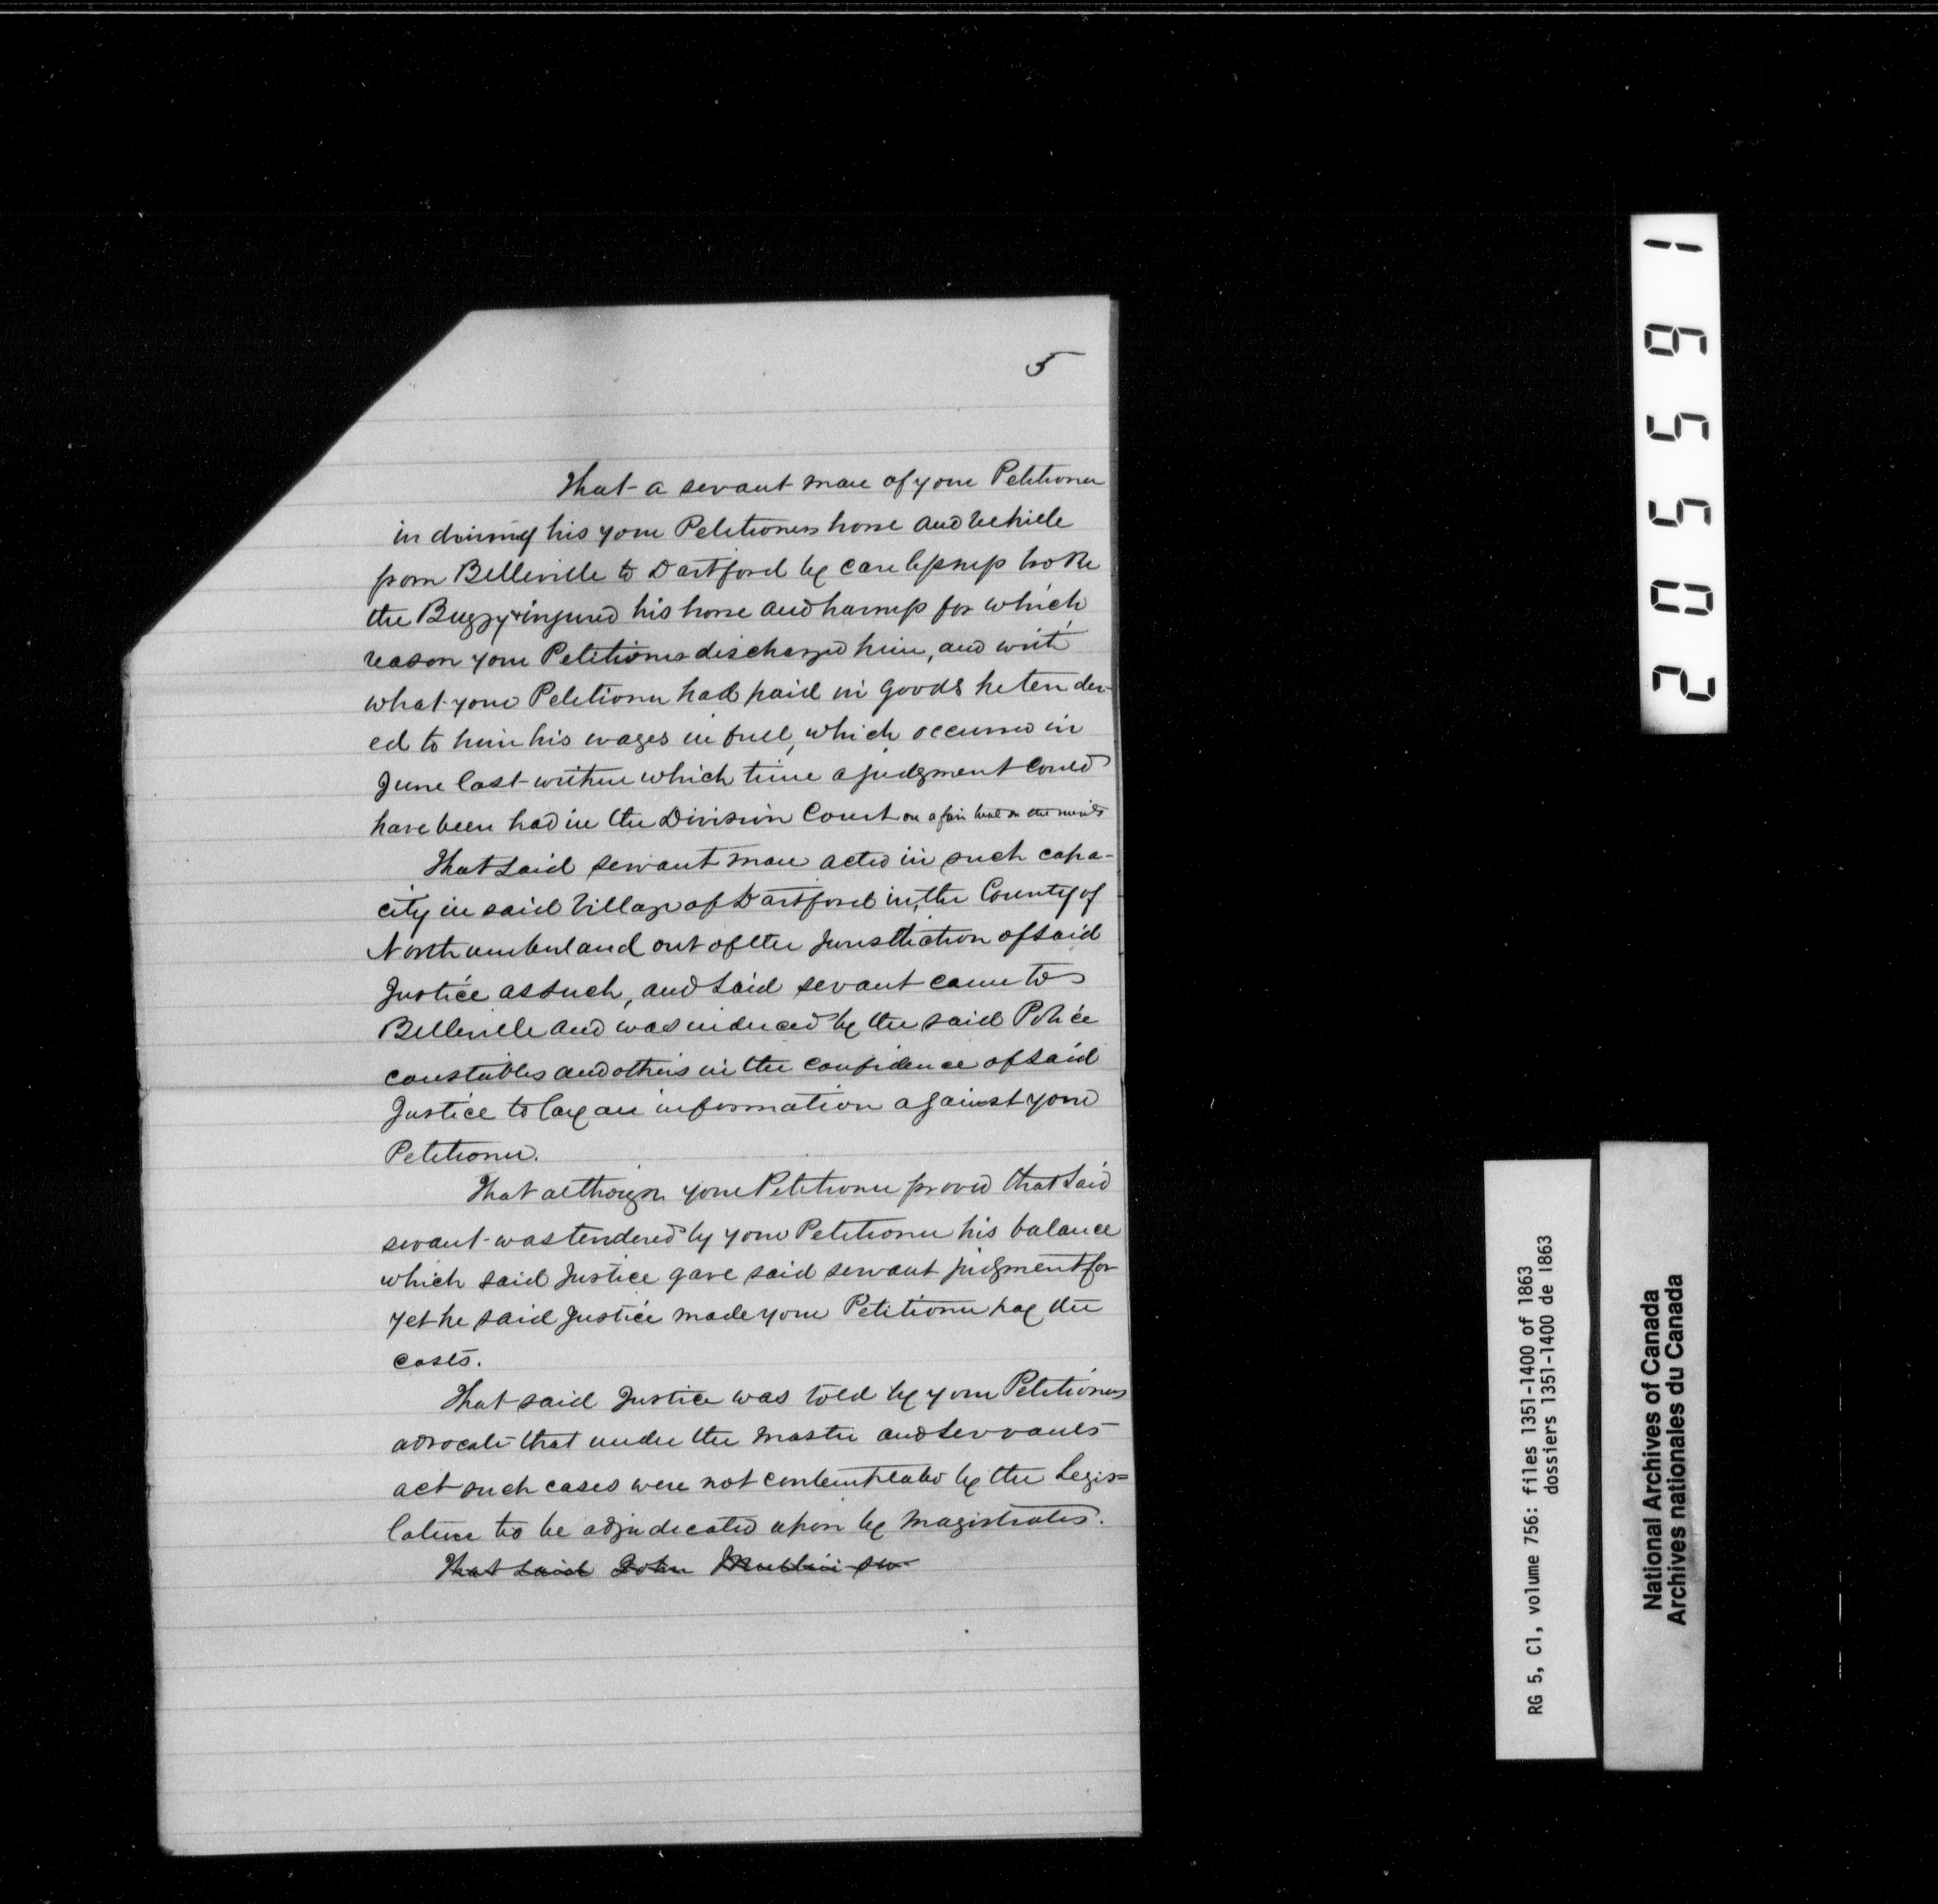 5
That a servant man of your Petitioner
in driving his your Petitioners horse and vehicle
from Belleville to Dartford by carelessness broke
the Buggy & injured his horse and harness for which
reason your Petitioner discharged him, and with
what your Petitioner had paid in goods he tender-
ed to him his wages in full, which occurred in
June last within which time a judgment could
have been had in the Division Court on a fair trial on the merits
That said servant man acted in such capa-
city in said Village of Dartford in the County of
Northumberland out of the Jurisdiction of said
Justice as such, and said servant came to
Belleville and was induced by the said Police
constables and others in the confidence of said
Justice to lay an information against your
Petitioner.
That although your Petitioner proved that said
servant was tendered by your Petitioner his balance
which said Justice gave said servant judgment for
yet he said Justice made your Petitioner pay the
costs.
That said Justice was told by your Petitioners
advocate that under the Master and Servants
act such cases were not contemplated by the Legis=
lature to be adjudicated upon by Magistrates.
That said John
205591
RG 5, C1, volume 756: files 1351-1400 of 1863
dossiers 1351-1400 de 1863
National Archives of Canada
Archives nationales du Canada